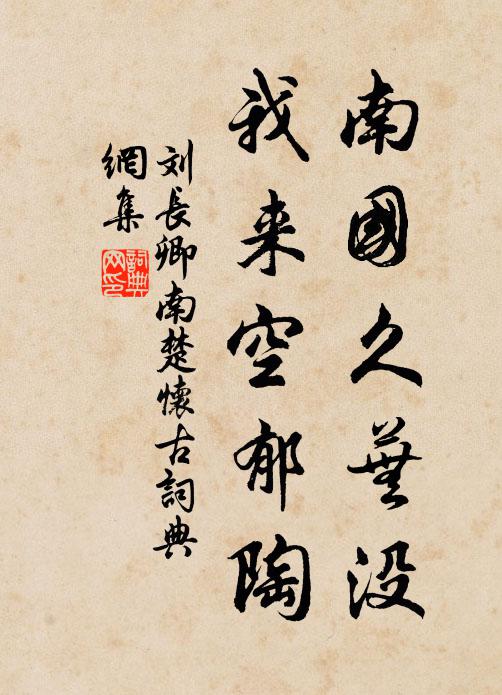 南國久蕪没
我来空郁陶
刘長卿南楚懷古詞典
網集
詞典
网印